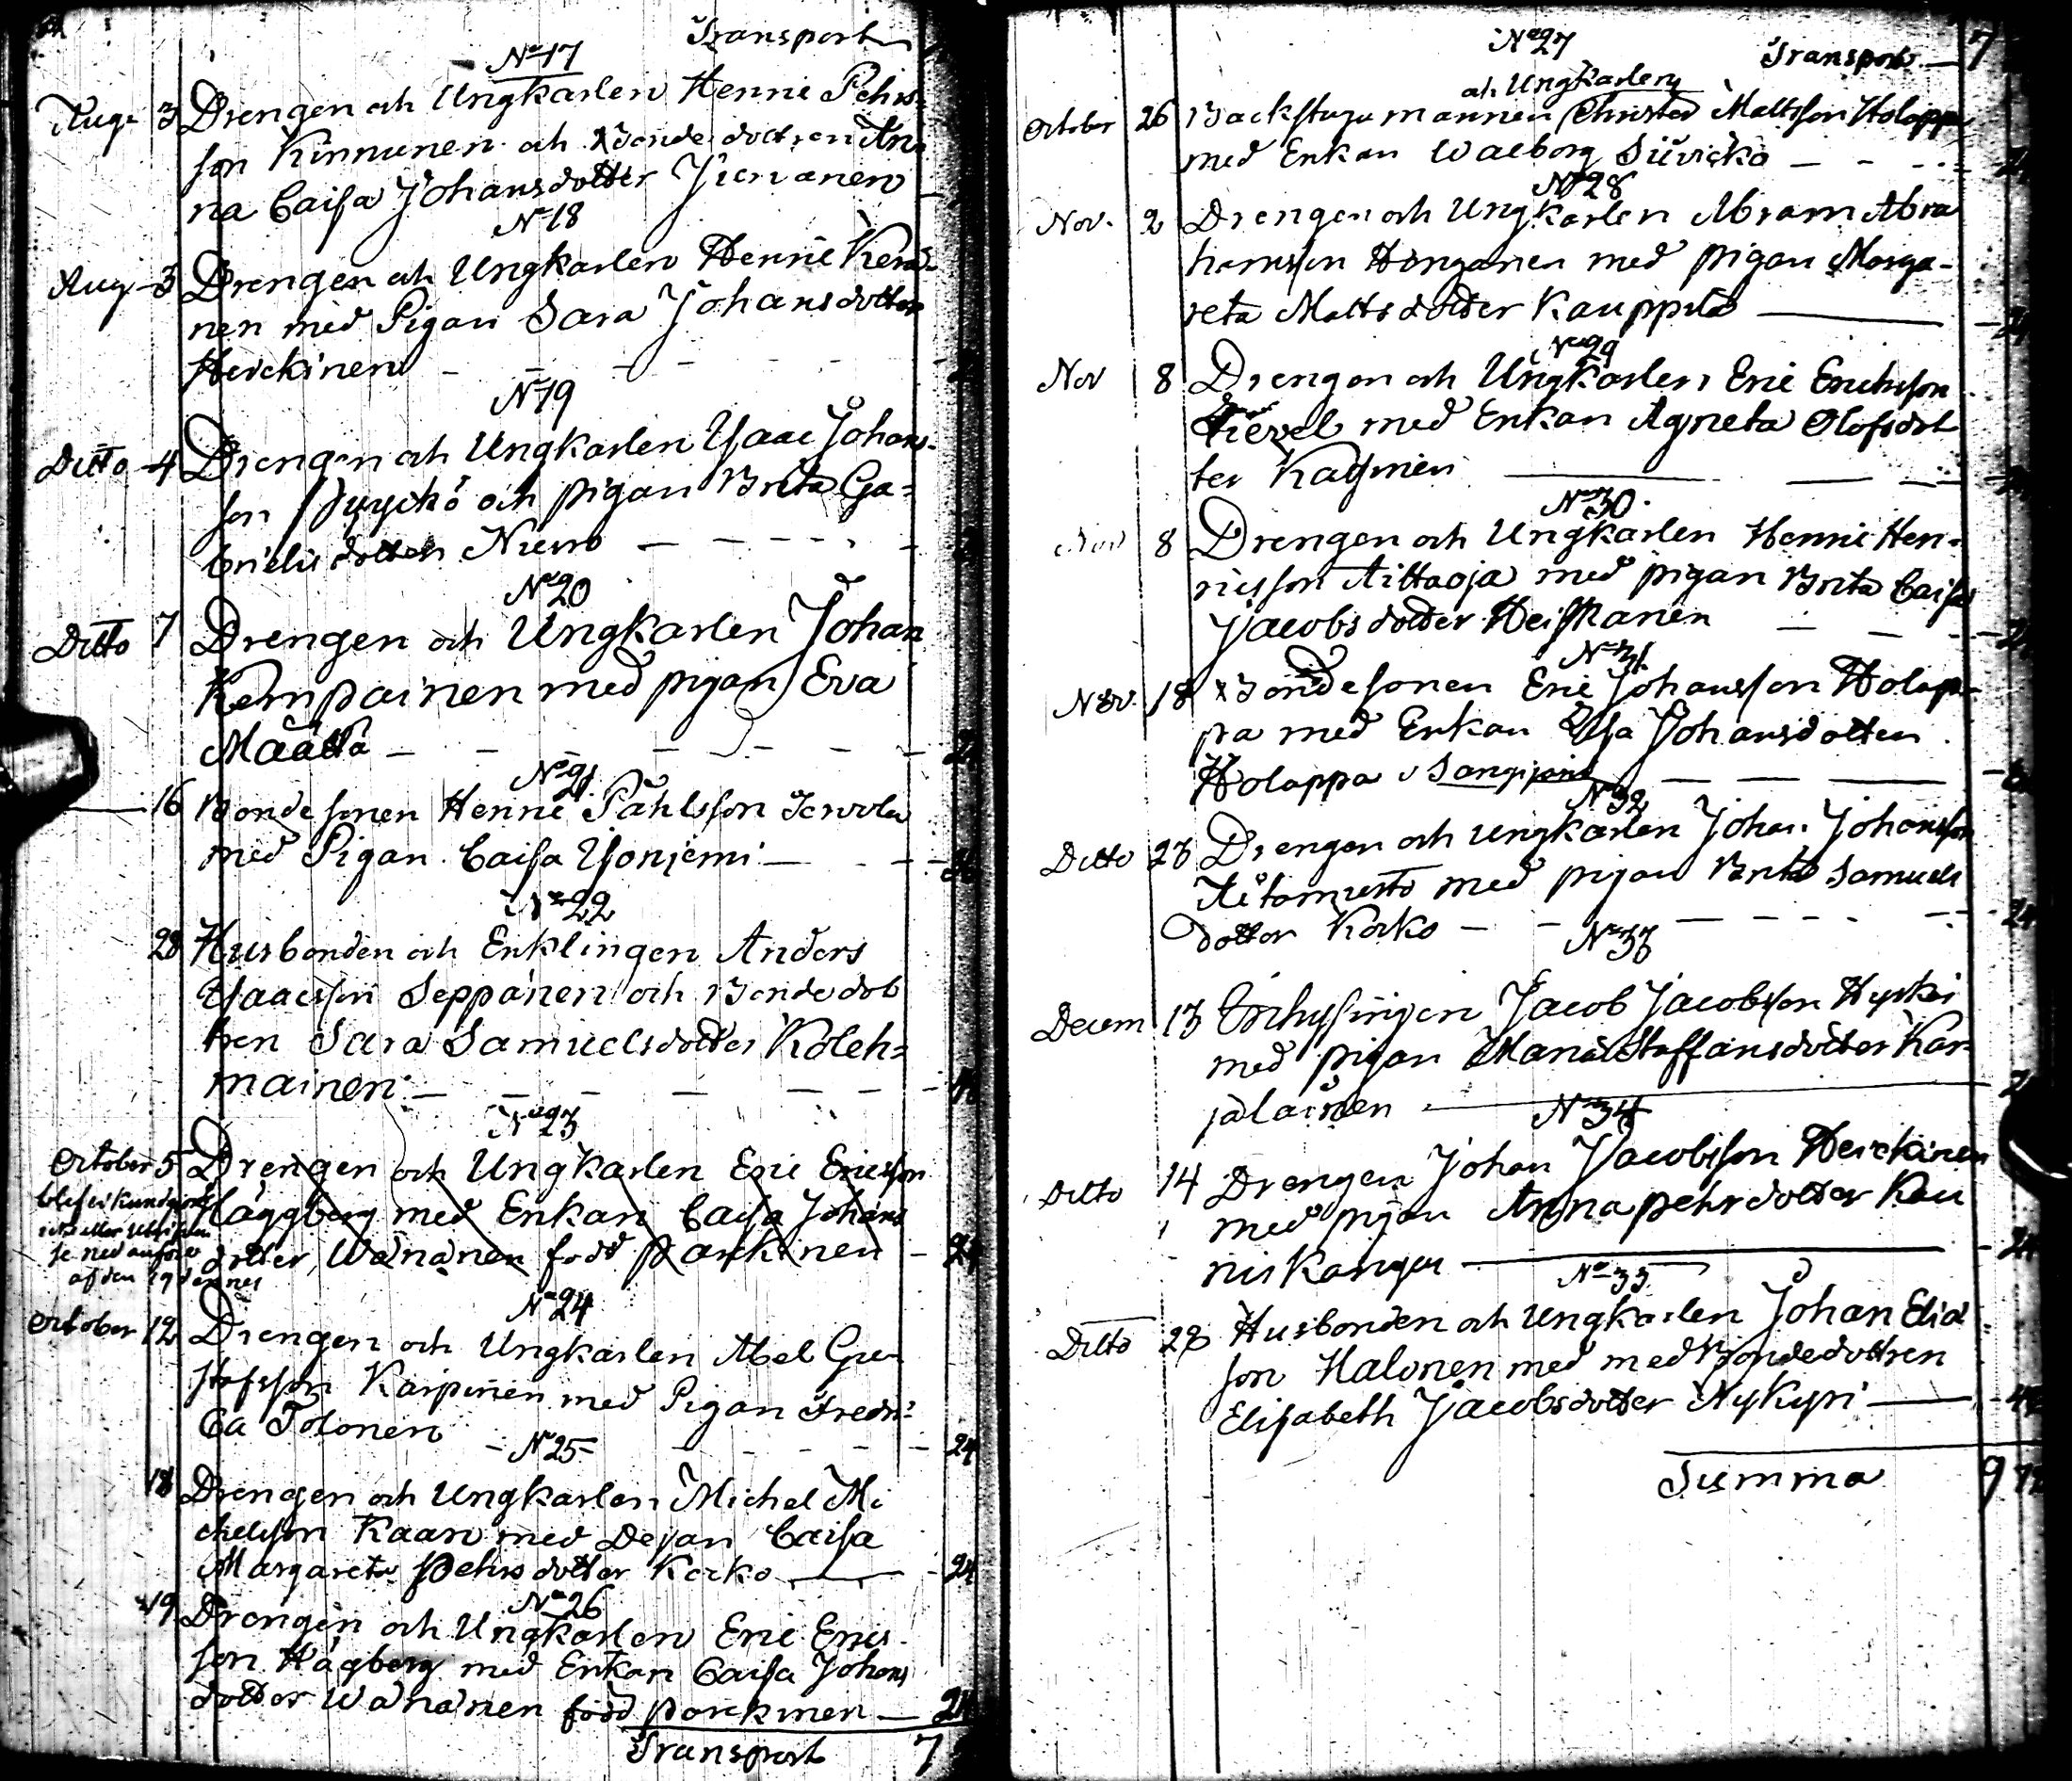 Transport
No 17
Aug. 3 Drengen och Ungkarlen Henric Pehrs-
son Kinnunen och Bonde dottren An-
na Caisa Johansdotter
No 18
Aug 3 Drengen och Ungkarlen Henric Kera-
nen med Pigan Sara Johansdotter
Herckinen
No 19
Ditto 4 Drengen och Ungkarlen Isaac Johans-
son Pyyckö och pigan Brita Ga-
brielsdotter
No 20
Ditto 7 Drengen och Ungkarlen Johan
Kempainen med pigan Eva
Määttä
No 21.
16 Bondesonen Henric Påhlsson Jervola
med Pigan Caisa
No 22
28 Husbonden och Enklingen Anders
Isaacsson Seppänen och Bondedot
tren Sara Samuelsdotter Koleh=
mainen
No 23
October 5 Drengen och Ungkarlen Eric Ericsson
Häggberg med Enkan Caisa Johans
dotter, Wänänen född Parkinen 24
af den 19 dennes
No 24
October 12 Drengen och Ungkarlen Abel Gu-
stafsson Karpinen med Pigan Fredri-
ca Tolonen 24
No 25
18 Drengen och Ungkarlen Michel Mi
chelsson Kaan med Dejan Caisa
Margareta Pehrsdotter Korko 24
No 26
19 Drengen och Ungkarlen Eric Erics
son Hägberg med Enkan Caisa Johans
dotter Wänänen född Parkinen 24
Transport 7
No 27
Transport 7
och Ungkarlen
October 26 Backstugu mannen Christer Mattsson Holappa
med Enkan Walborg
No 28
Nov. 2 Drengen och Ungkarlen Abram Abra
hamsson Honganen med pigan Marga-
reta Mattsdotter Kauppila
No 29
Nov 8 Drengen och Ungkarlen Eric Ericsson
med Enkan Agneta Olofsdot
ter
No 30.
Nov 8 Drengen och Ungkarlen Henric Hen-
ricsson Aittaoja med pigan Brita Caisa
Jacobsdotter Heiskanen
No 31.
Nov. 18 Bondesonen Eric Johansson Holap-
pa med Enkan Johansdotter
Holappa
No 32
Ditto 23 Drengen och Ungkarlen Johan Johansson
med pigan Brita Samuels
dotter Korko 24
No 33
Decem 13 Jacob Jacobsson Hyrkei
med pigan Maria Staffansdotter Kar-
jalainen
No 34
Ditto 14 Drengen Johan Jacobsson Herckinen
med pigan Anna Pehrsdotter Kau
niskangas 24
No 35
Ditto 28 Husbonden och Ungkarlen Johan Elia
son Halonen med med Bondedottren
Elisabeth Jacobsdotter Nykyri
Summa 9